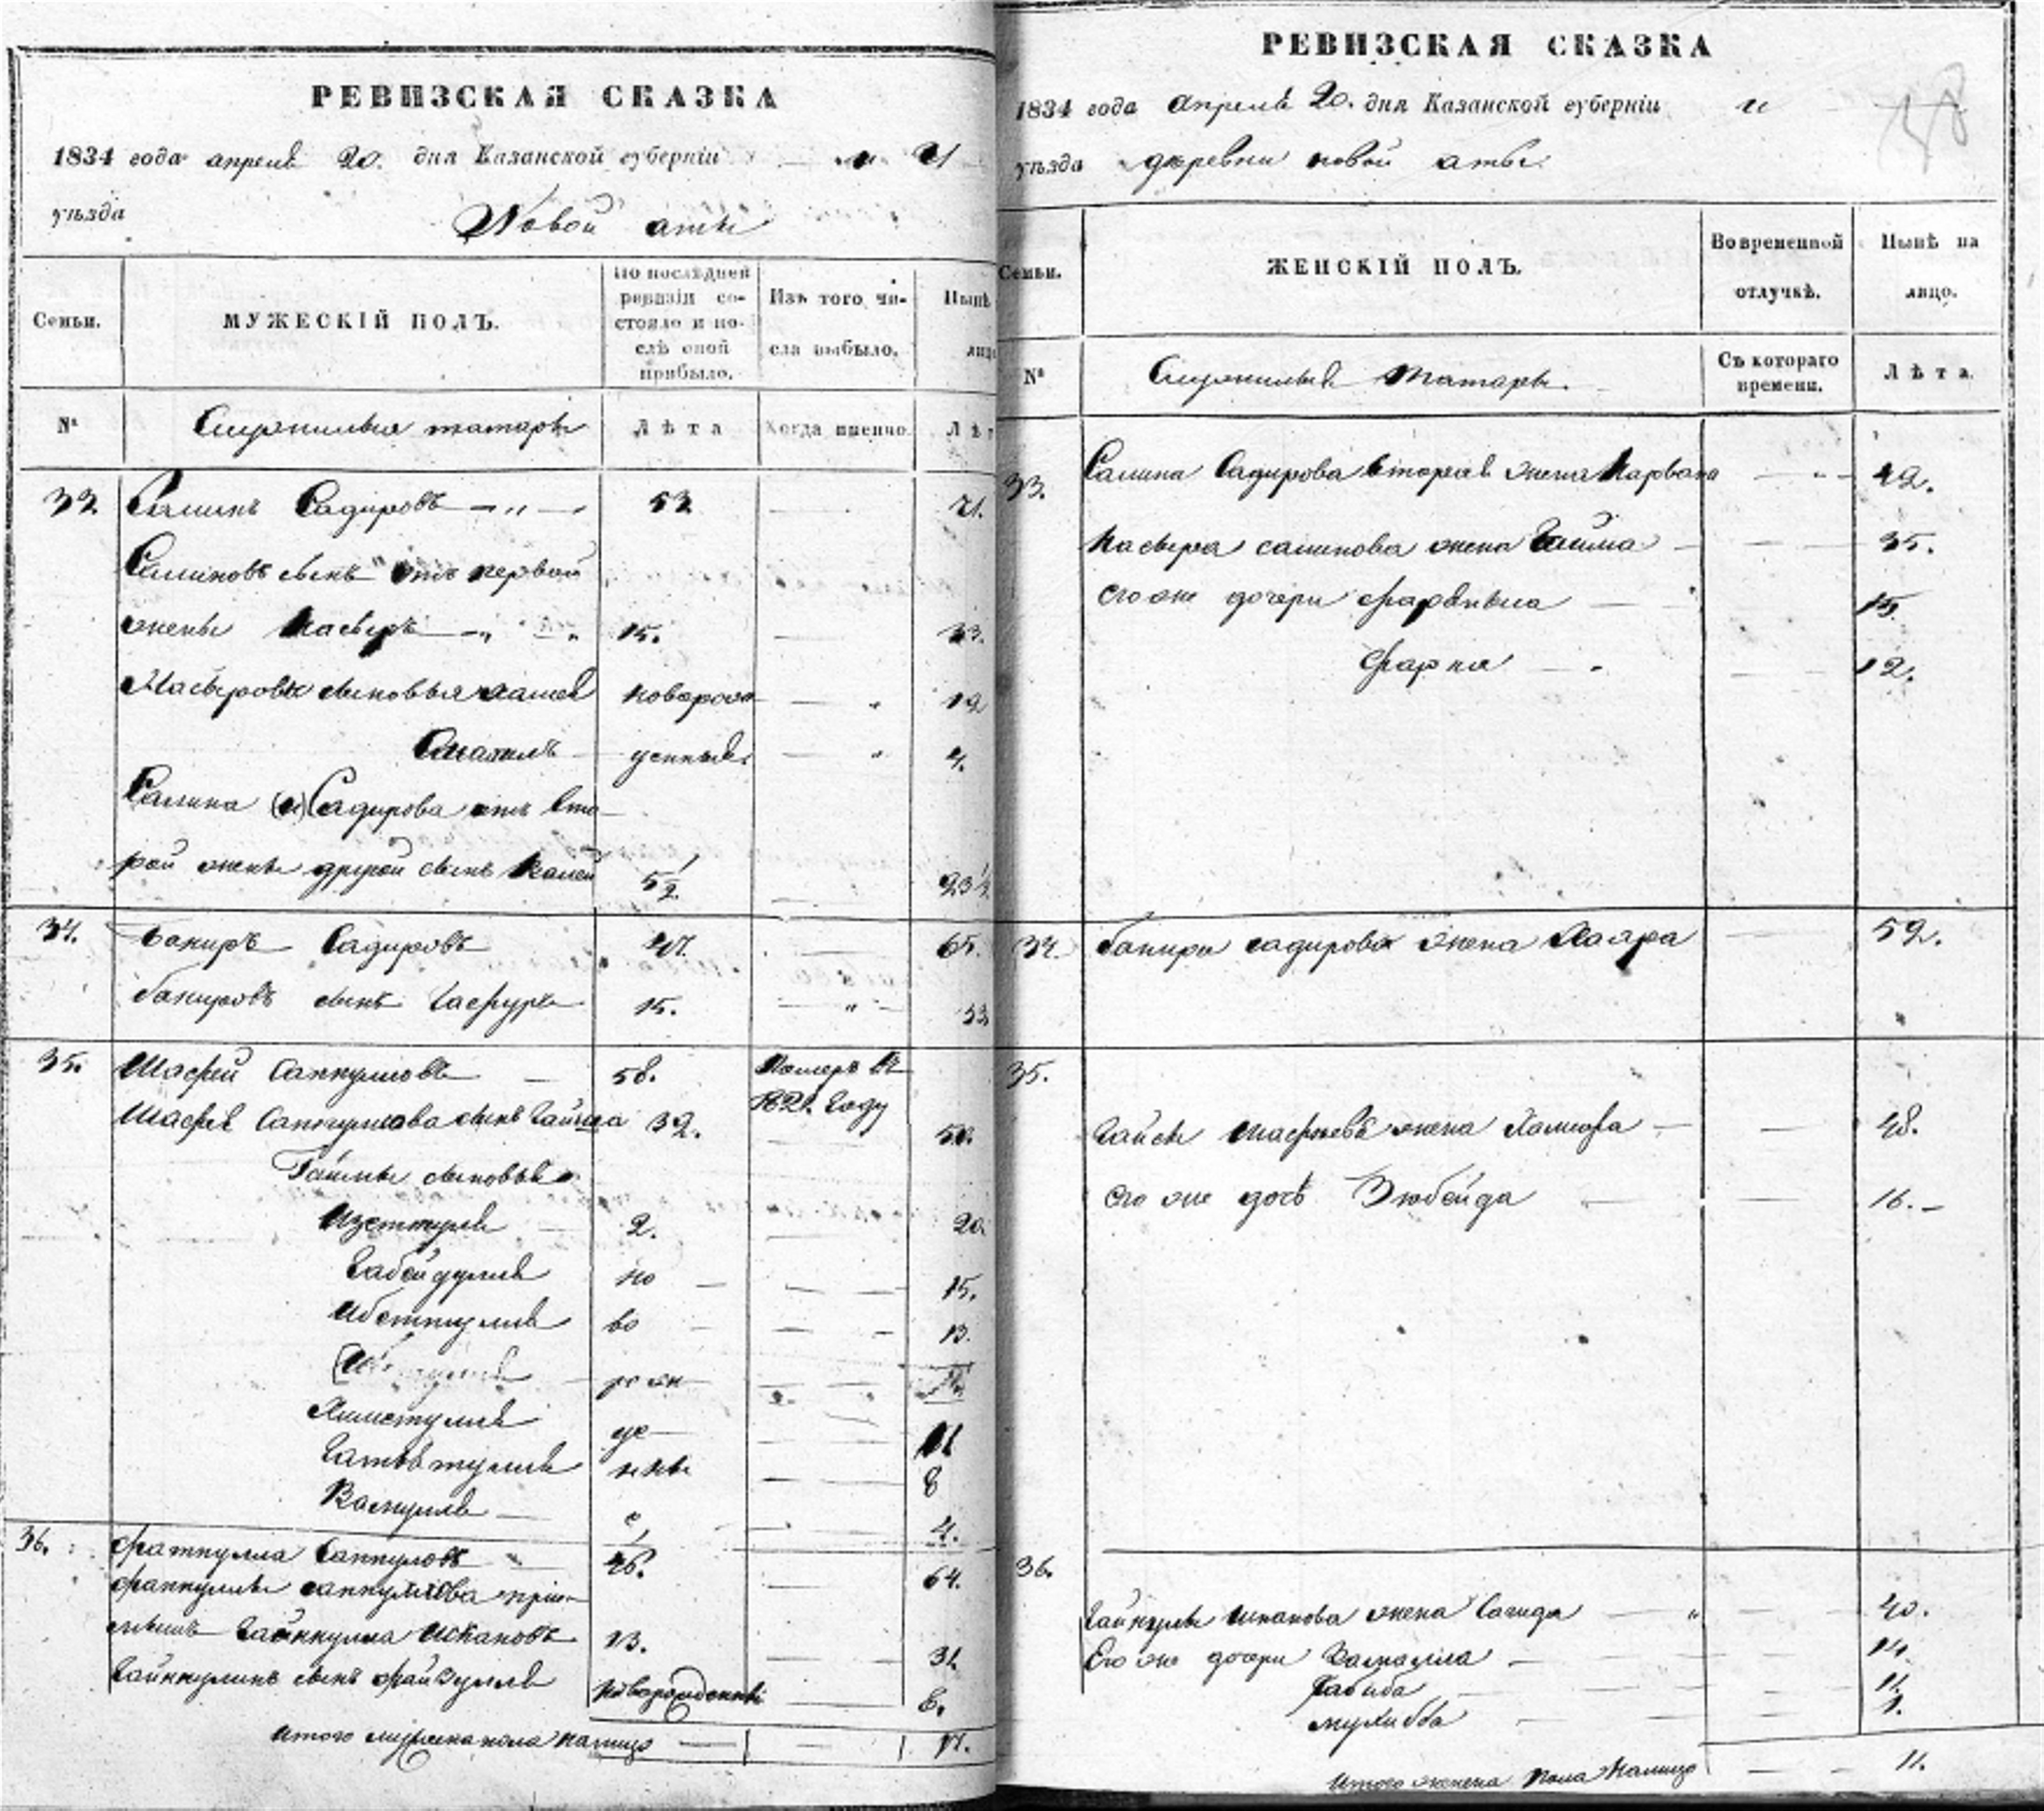 РЕВИЗСКАЯ СКАЗКА
1834 года апреля 20. дня Казанской губернiи
уѣзда Новой аты
Семьи.
МУЖЕСКIЙ ПОЛЪ.
По последней ревизiи состояло и послѣ оной прибыло.
Изъ того числа выбыло.
Нынѣ лицо
№
Служилыя татары
Лѣта
Когда именно
Лѣт
33. Салимъ Садыровъ 53 71.
Салимовъ сынъ отъ первой
жены Насыръ 15. 33.
Насыровы сыновья новорож 12
Смагилъ денныя 4.
Салима (а) Садырова отъ вто
рой жены другой сынъ 5 1/2 23 1/2
34. Бакиръ Садыровъ 47. 65.
бакировъ сынъ Гафуръ 15. 33
35. Шафей Сапкуловъ 58. Померъ въ
1821 году
Шафея Сапкулова сынъ Гайса 32. 50.
Гайсы сыновья
Изеткулла 2. 20
Габейдулла но 15.
Ибеткулла во 13.
рож
Химетулла де 11
нны 8
Валиулла е 4.
36. Фаткулла Сапкуловъ 46. 64.
фаткуллы сапкулова прiи
мышъ Гайнкулла Искаковъ 13. 31
Гайнкулинъ сынъ Файзулла Новорожденный 6.
Итого мужска пола налицо 17.
РЕВИЗСКАЯ СКАЗКА
1834 года апреля 20. дня Казанской губернiи и
уѣзда деревни новой аты.
Семьи.
ЖЕНСКIЙ ПОЛЪ.
Во временной отлучкѣ.
Нынѣ на лицо.
№
Служилыя татары.
Съ котораго времени.
Лѣта.
33. Салима Садырова вторая жена Марвана 42.
Насыра салимова жена 35.
его же дочери 15.
12.
34. бакира садырова жена Хаяра 59.
35.
Гайсы шафѣева жена 48.
его же дочь Зюбейда 16.
36.
Гайнкуллы искакова жена Сагида 40.
Его же дочери 14.
Габиба 11.
мухибба 1.
Итого женска пола налицо 11.